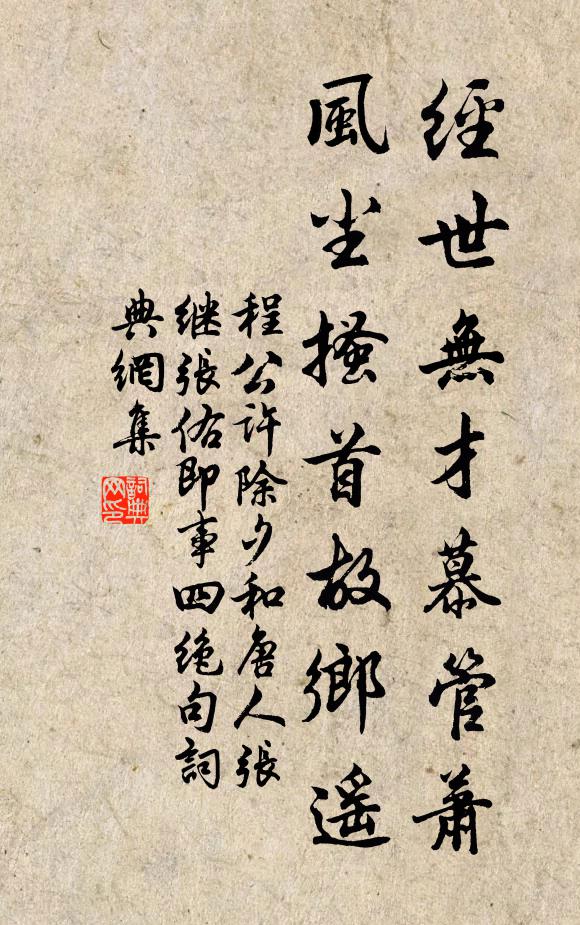 經世無才慕管蕭
風尘搔首故鄉遥
程公許除夕和唐人張
继張佑即事四絶句詞
典網集
詞典
网印